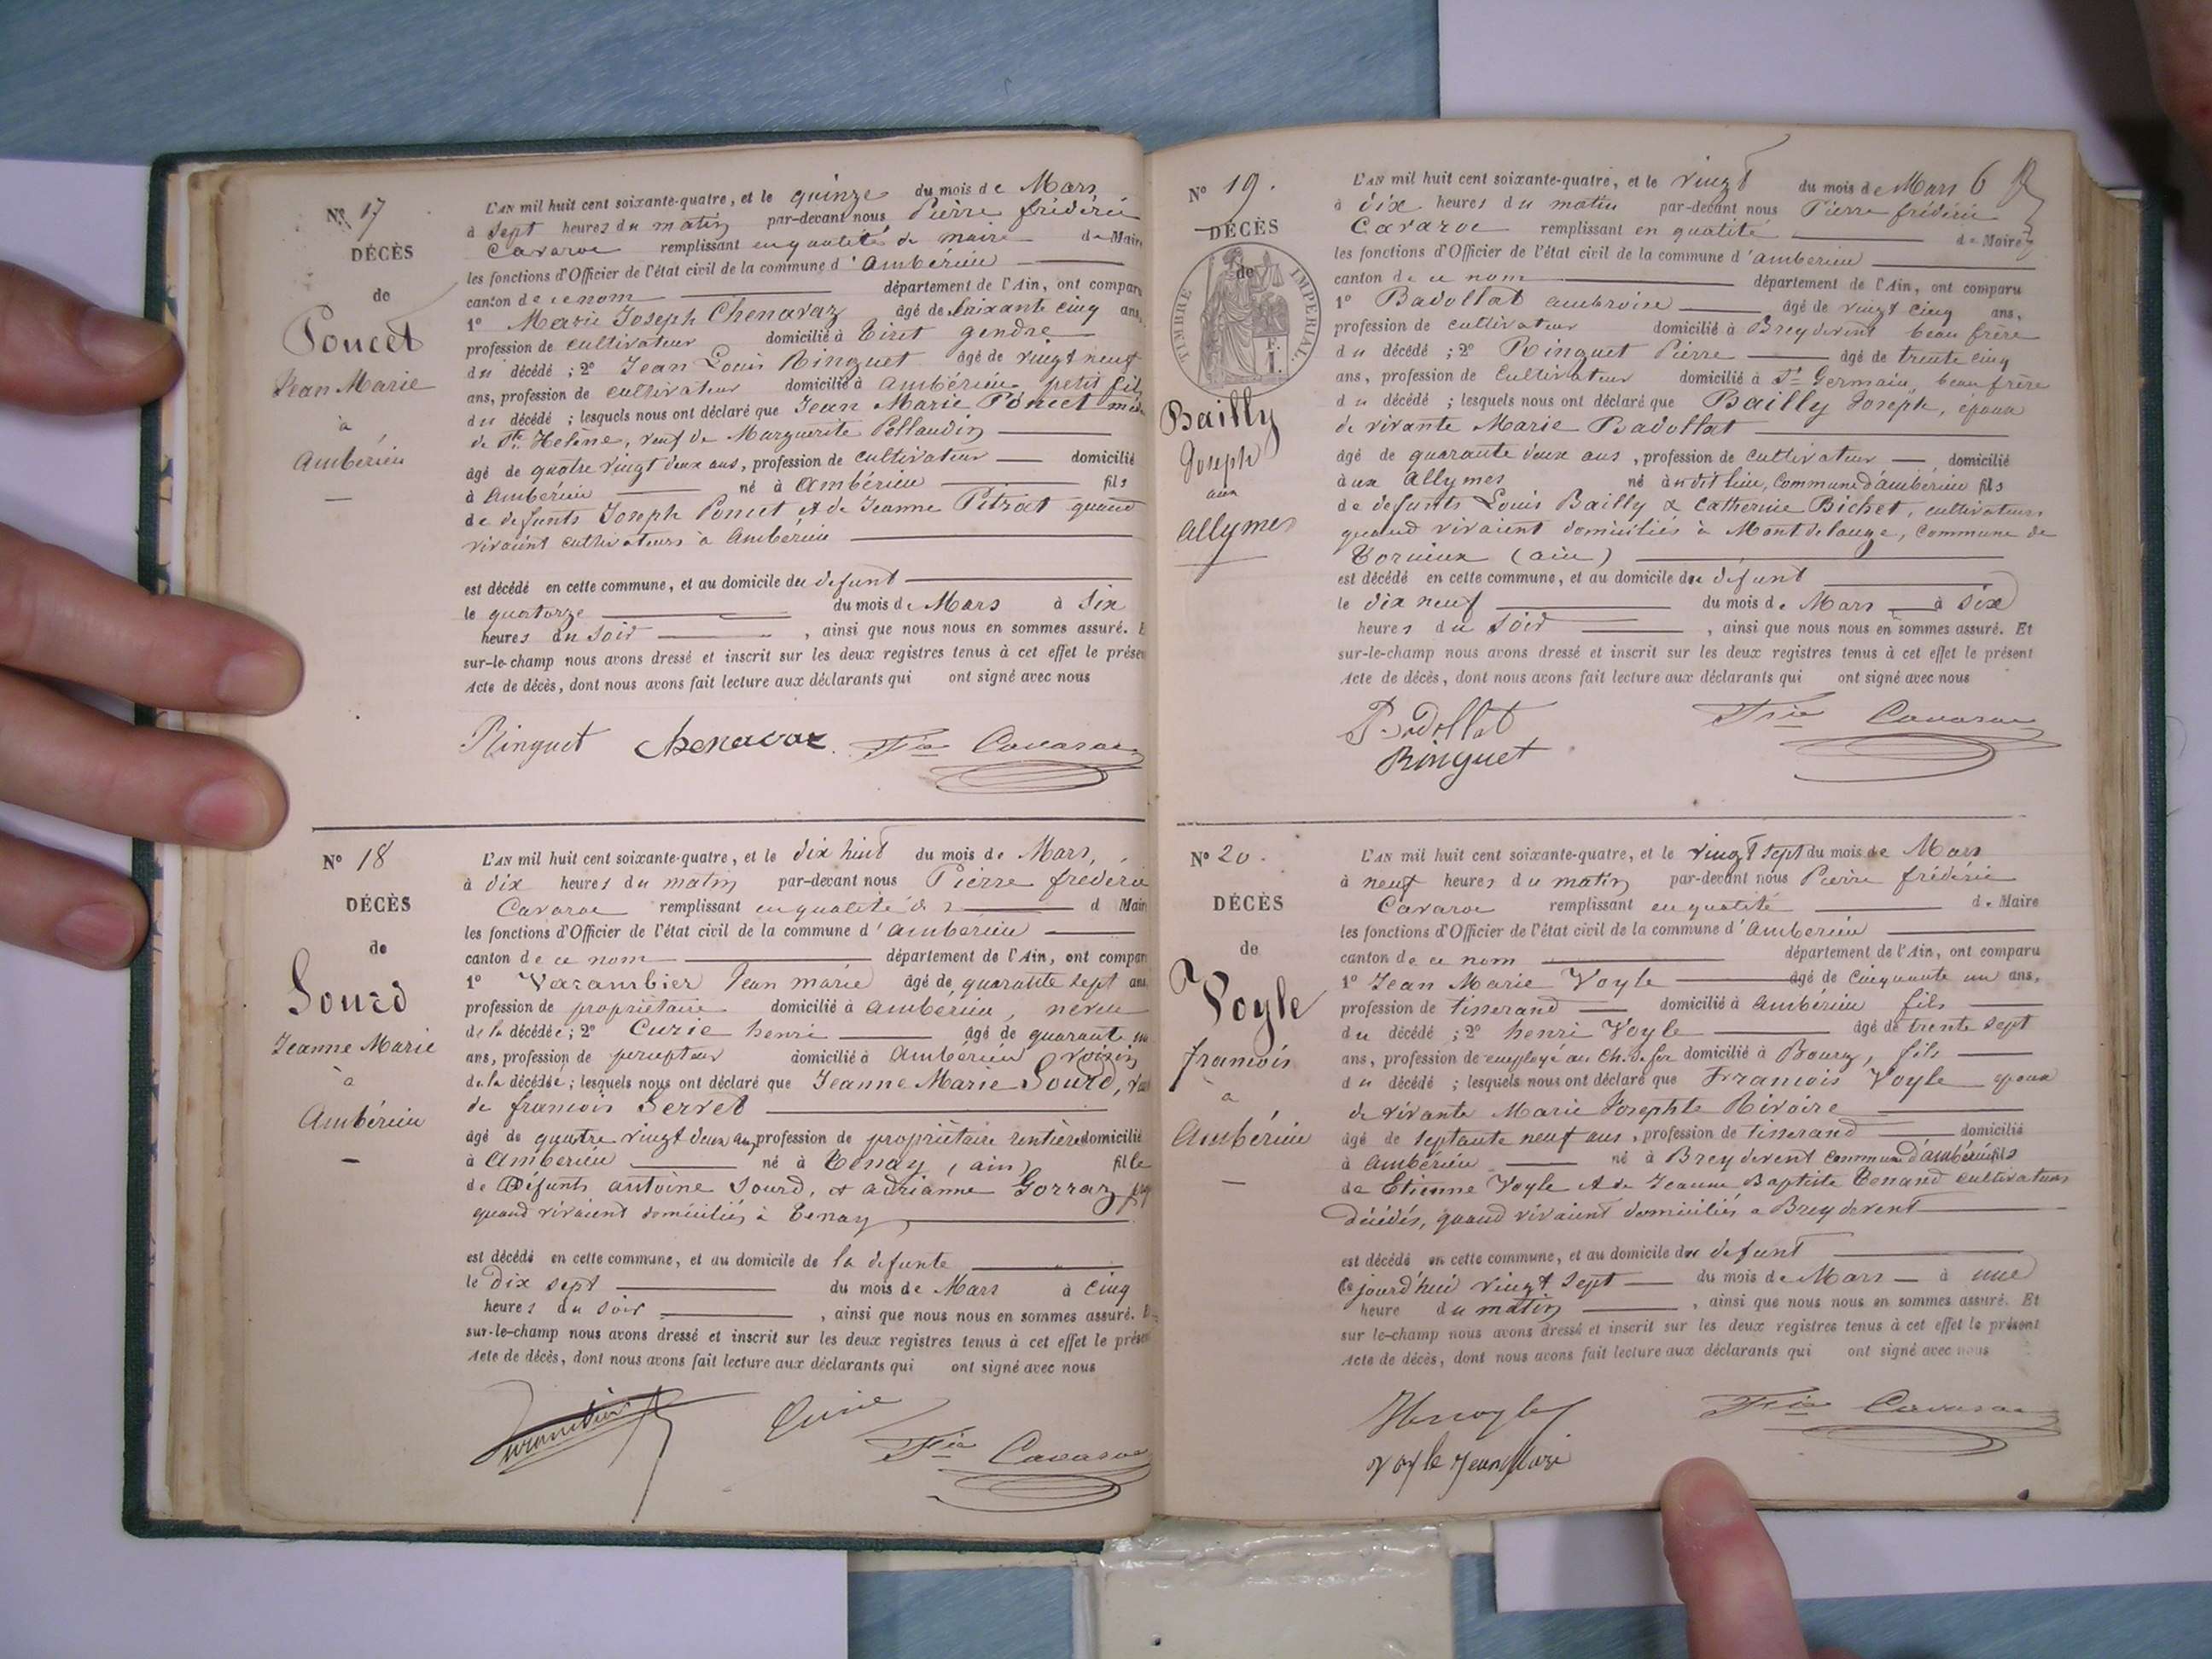 Nº 17
DÉCÈS
de
Poncet
Jean Marie
à
Ambérieu
L'AN mil huit cent soixante-quatre, et le quinze du mois de Mars
à sept heures du matin par-devant nous Pierre frédéric
Cavaroc remplissant en qualité de maire de Maire
les fonctions d'Officier de l'état civil de la commune d'Ambérieu
canton de ce nom département de l'Ain, ont comparu
1º Marie Joseph Chenavaz âgé de soixante cinq ans,
profession de cultivateur domicilié à Tiret gendre
du décédé ; 2º Jean Louis Ringuet âgé de vingt neuf
ans, profession de cultivateur domicilié à Ambérieu petit fils
du décédé ; lesquels nous ont déclaré que Jean Marie Poncet
de Ste Helène, veuf de Marguerite Pellaudin
âgé de quatre vingt deux ans, profession de cultivateur domicilié
à Ambérieu né à Ambérieu fils
de defunts Joseph Poncet et de Jeanne Pitrat quand
vivaient cultivateurs à Ambérieu
est décédé en cette commune, et au domicile du defunt
le quatorze du mois de Mars à six
heures du soir , ainsi que nous nous en sommes assuré. E
sur-le-champ nous avons dressé et inscrit sur les deux registres tenus à cet effet le présen
Acte de décès, dont nous avons fait lecture aux déclarants qui ont signé avec nous
Ringuet Chenavaz Fric Cavaroc
Nº 18
DÉCÈS
de
Sourd
Jeanne Marie
à
Ambérieu
L'AN mil huit cent soixante-quatre, et le dix huit du mois de Mars,
à dix heures du matin par-devant nous Pierre frédéric
Cavaroc remplissant en qualité de d Mair
les fonctions d'Officier de l'état civil de la commune d'Ambérieu
canton de ce nom département de l'Ain, ont compar
1º Varambier Jean marie âgé de quarante sept ans
profession de propriétaire domicilié à Ambérieu, neveu
de la décédée ; 2º Curie henri âgé de quarante
ans, profession de percepteur domicilié à Ambérieu voisin
de la décédée ; lesquels nous ont déclaré que Jeanne Marie Sourd,
de francois Servet
âgé de quatre vingt deux ans, profession de propriétaire rentière domicilié
à Ambérieu né à Tenay (ain) fille
de Défunts antoine Sourd, & adrianne Gorraz
quand vivaient domiciliés à Tenay
est décédé en cette commune, et au domicile de la defunte
le dix sept du mois de Mars à cinq
heures du soir , ainsi que nous nous en sommes assuré. E
sur-le-champ nous avons dressé et inscrit sur les deux registres tenus à cet effet le présen
Acte de décès, dont nous avons fait lecture aux déclarants qui ont signé avec nous
Curie
Fric Cavaroc
Nº 19.
DÉCÈS
de
TIMBRE IMPERIAL
Bailly
Joseph
aux
allymes
L'AN mil huit cent soixante-quatre, et le vingt du mois de Mars 6
à dix heures du matin par-devant nous Pierre frédéric
Cavaroc remplissant en qualité de Maire
les fonctions d'Officier de l'état civil de la commune d'Ambérieu
canton de ce nom département de l'Ain, ont comparu
1º Badollat ambroise âgé de vingt cinq ans,
profession de cultivateur domicilié à Breydevent beau frère
du décédé ; 2º Ringuet Pierre âgé de trente cinq
ans, profession de Cultivateur domicilié à St Germain, beau frère
du décédé ; lesquels nous ont déclaré que Bailly Joseph, époux
de vivante Marie Badollat
âgé de quarante deux ans, profession de cultivateur domicilié
à ux Allymes né à udit lieu, Commune d'ambérieu fils
de defunts Louis Bailly & Catherine Bichet, cultivateurs
quand vivaient domiciliés à Mont de lange, Commune de
Torcieux (ain)
est décédé en cette commune, et au domicile du defunt
le dix neuf du mois de Mars à six
heures du soir , ainsi que nous nous en sommes assuré. Et
sur-le-champ nous avons dressé et inscrit sur les deux registres tenus à cet effet le présent
Acte de décès, dont nous avons fait lecture aux déclarants qui ont signé avec nous
Badollat Fric Cavaroc
Ringuet
Nº 20.
DÉCÈS
de
Voyle
francois
à
Ambérieu
L'AN mil huit cent soixante-quatre, et le vingt sept du mois de Mars
à neuf heures du matin par-devant nous Pierre frédéric
Cavaroc remplissant en qualité de Maire
les fonctions d'Officier de l'état civil de la commune d'Ambérieu
canton de ce nom département de l'Ain, ont comparu
1º Jean Marie Voyle âgé de cinquante un ans,
profession de tisserand domicilié à Ambérieu fils
du décédé ; 2º henri Voyle âgé de trente sept
ans, profession de employé au Ch. de fer domicilié à Bourg, fils
du décédé ; lesquels nous ont déclaré que Francois Voyle époux
de vivante Marie Josephte Rivoire
âgé de septante neuf ans, profession de tisserand domicilié
à Ambérieu né à Breydevent commune d'ambérieu fils
de Etienne Voyle et de Jeanne Baptiste Tenand cultivateurs
décédés, quand vivaient domiciliés a Breydevent
est décédé en cette commune, et au domicile du defunt
ce jourd'hui vingt sept du mois de Mars à une
heure du matin , ainsi que nous nous en sommes assuré. Et
sur le-champ nous avons dressé et inscrit sur les deux registres tenus à cet effet le présent
Acte de décès, dont nous avons fait lecture aux déclarants qui ont signé avec nous
Henvoyle Fric Cavaroc
voyle jean Mari